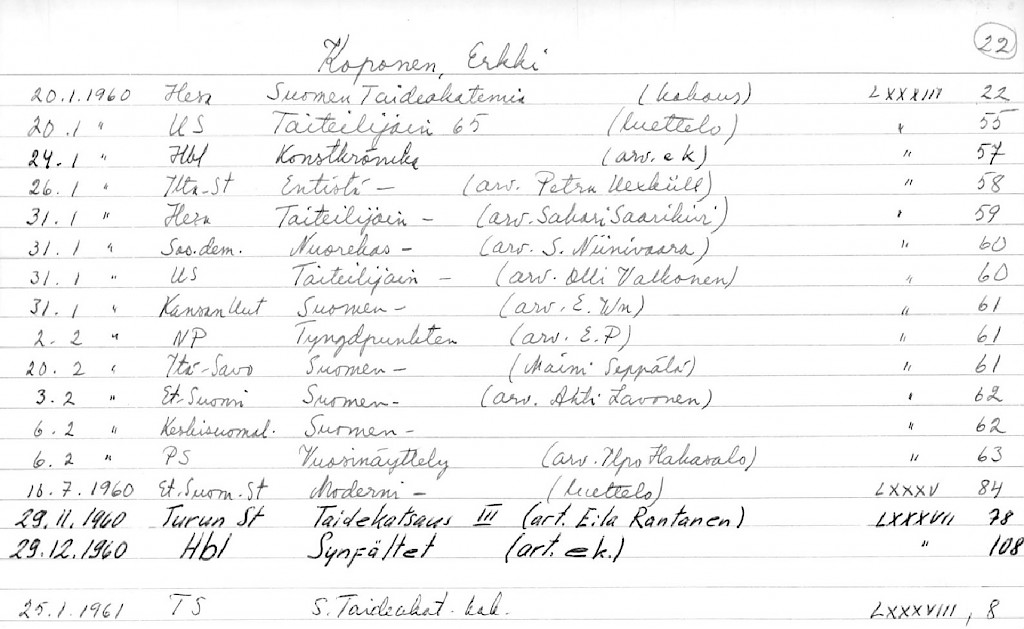 22
Koponen, Erkki
20.1.1960 Hesa Suomen Taideakatemia (kokous) LXXXIII 22
20.1 " US Taiteilijain 65 (luettelo) " 55
24.1 " Hbl Konstkrönika (arv. e k) " 57
26.1 " Ilta-St Entistä - (arv. Petra Uexküll) " 58
31.1 " Hesa Taiteilijain - (arv. Sakari Saarikivi) " 59
31.1 " Sos.dem. Nuorekas - (arv. S. Niinivaara) " 60
31.1 " US Taiteilijain - (arv. Olli Valkonen) " 60
31.1 " Kansan Uut Suomen - (arv. E. Wn) " 61
2.2 " NP Tyngdpunkten (arv. E.P) " 61
20.2 " Itä-Savo Suomen - (Maini Seppälä) " 61
3.2 " Et-Suomi Suomen - (arv. Ahti Lavonen) " 62
6.2 " Keskisuomal. Suomen - " 62
6.2 " PS Vuosinäyttely (arv. Ilpo Hakasalo) " 63
16.7.1960 Et.Suom.St Moderni - (luettelo) LXXXV 84
29.11.1960 Turun St Taidekatsaus III (art. Eila Rantanen) LXXXVII 78
29.12.1960 Hbl Synfältet (art. e k.) " 108
25.1.1961 TS S. Taideakat. kok. LXXXVIII, 8